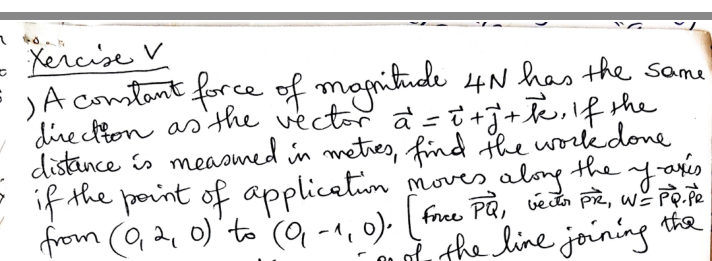 Xercise V
) A constant force of magnitude 4N has the same
direction as the vector a⃗ = i⃗ + j⃗ + k⃗. If the
distance is measured in metres, find the work done
if the point of application moves along the y-axis
from (0, 2, 0) to (0, -1, 0). [force P⃗Q⃗, vector P⃗R⃗, W = P⃗Q⃗.P⃗R⃗
of the line joining the